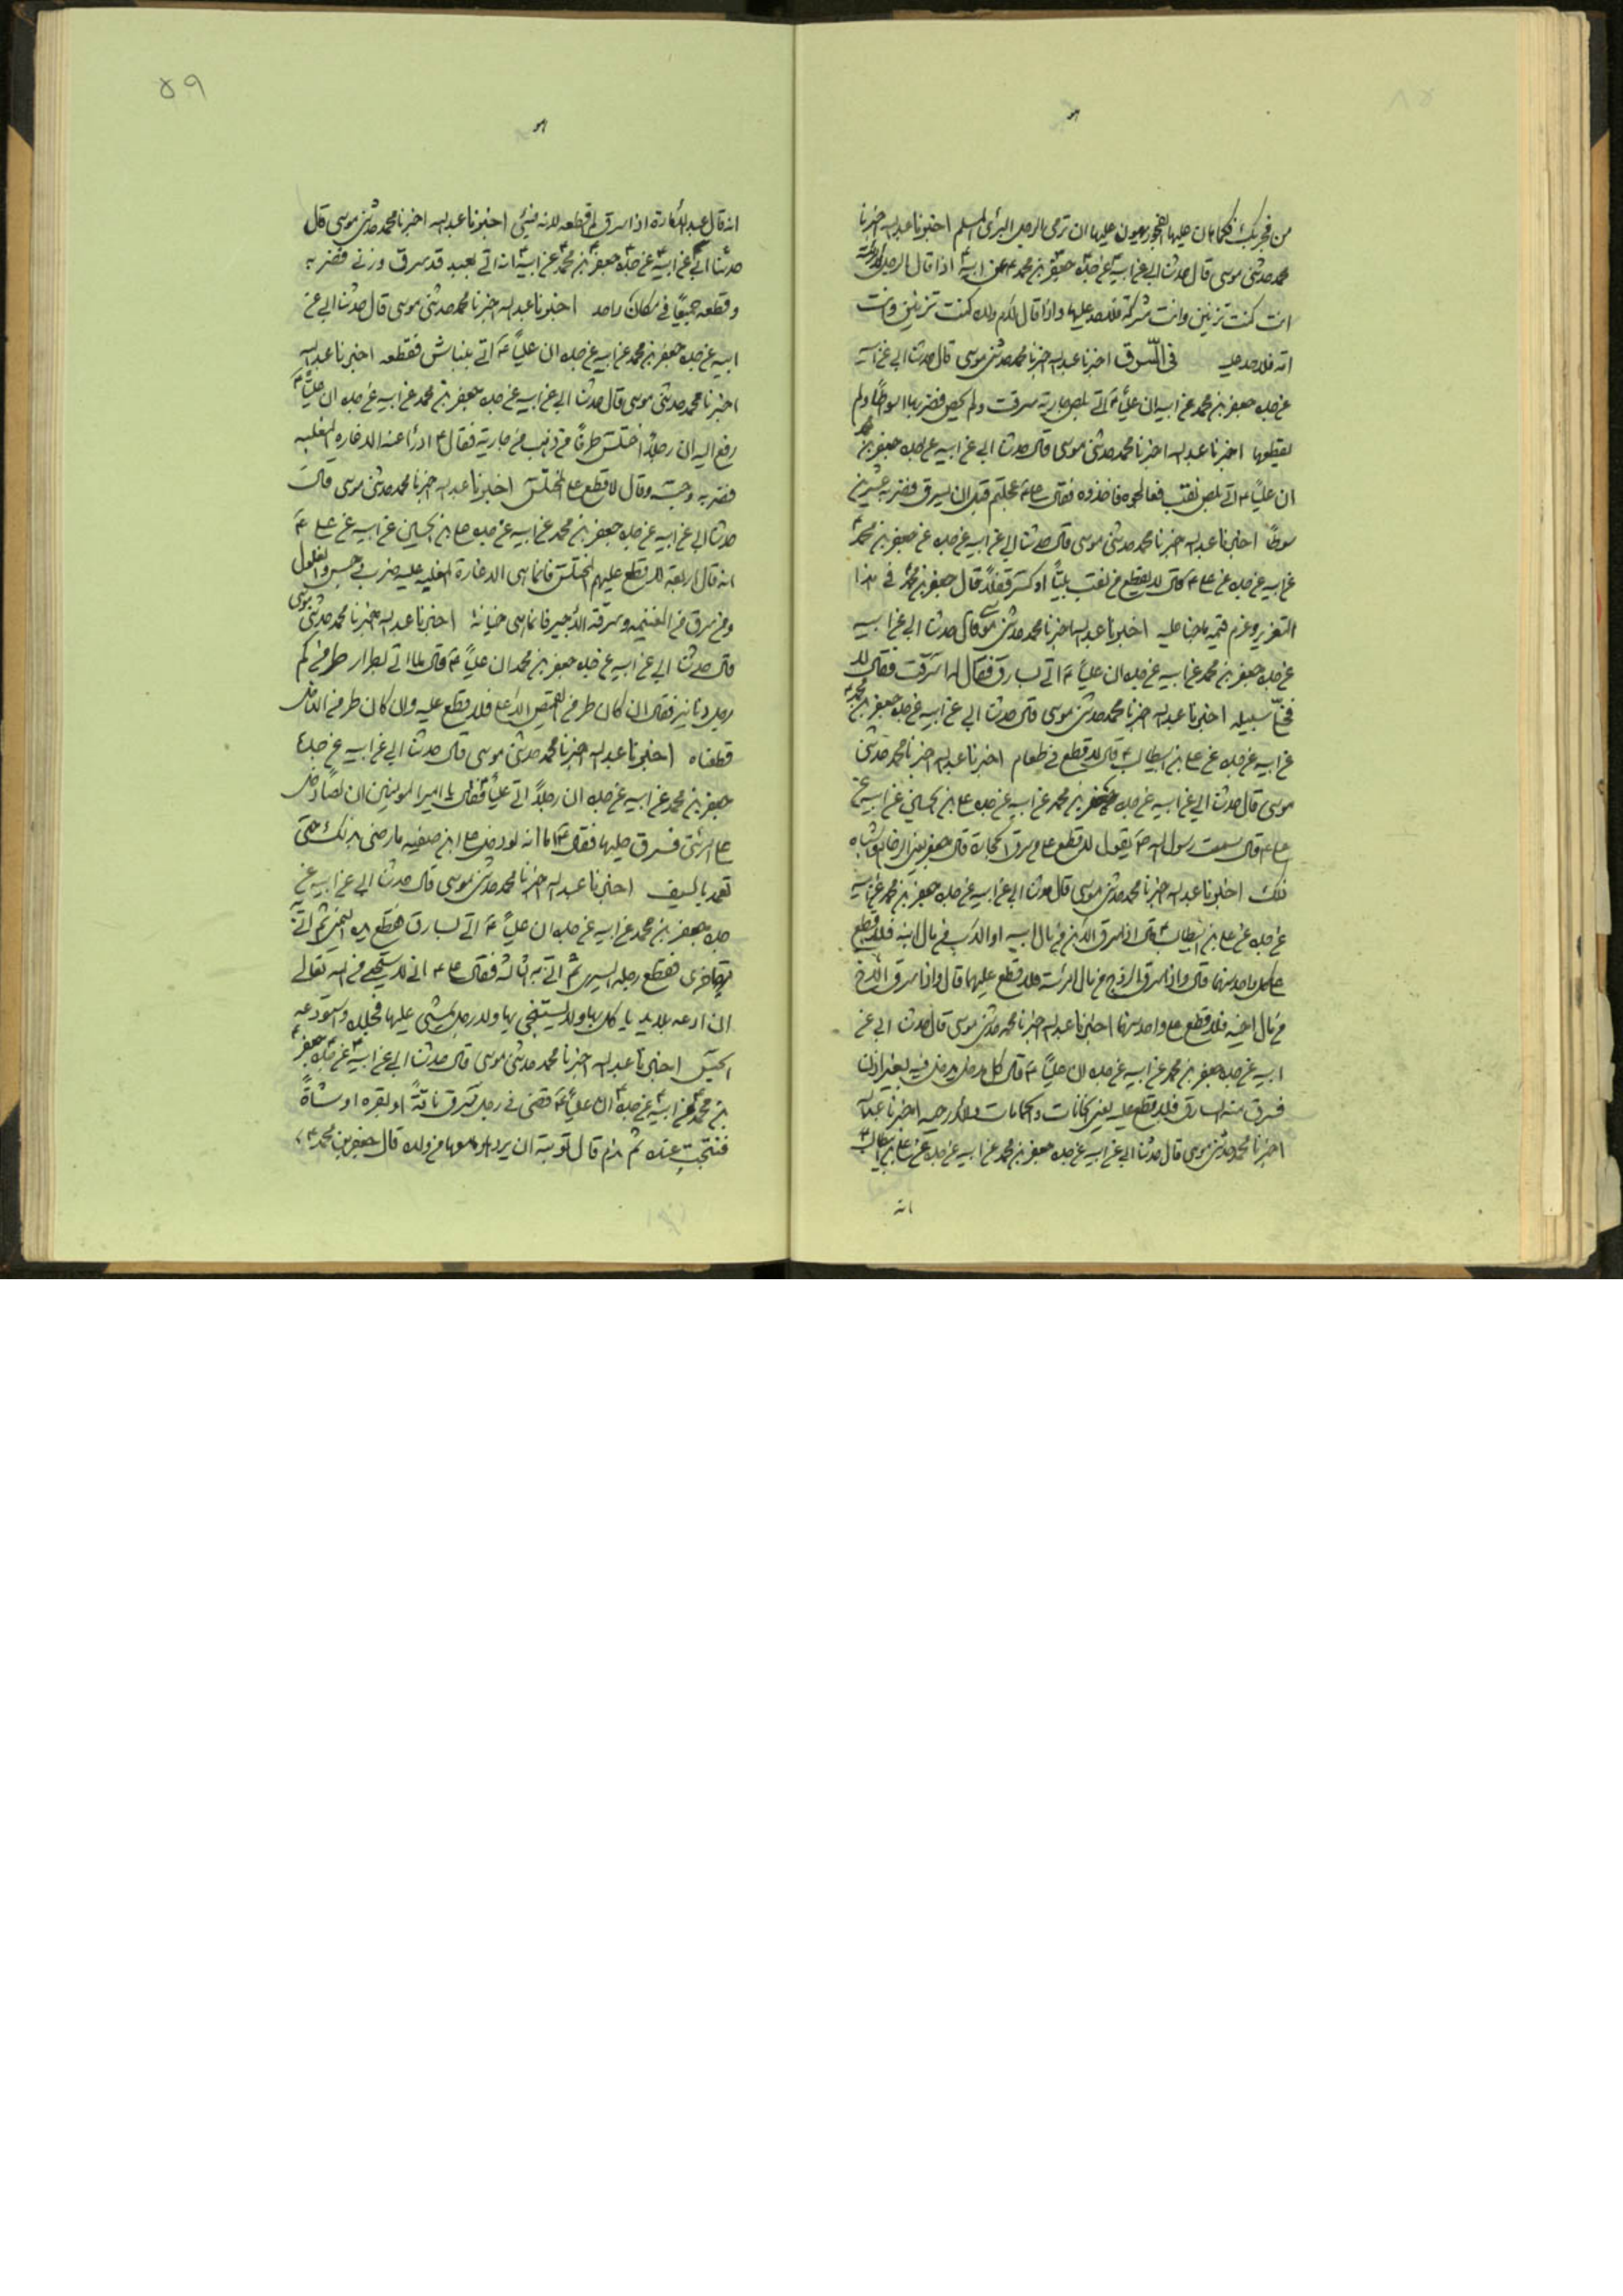 من فجر بك فكما هان عليها الفجور يهون عليها ان ترمى بالرجل البرئ المسلم اخبرنا عبد الله اخبرنا
محمد حدثنى موسى قال حدثنا ابي عن ابيه عن جده جعفر بن محمد عن ابيه اذا قال الرجل لامرئته
انت كنت تزنين وانت مشركة فلا حد عليها واذا قال لام ولده كنت تزنين وانت
امة فلا حد عليه في السرق اخبرنا عبد الله اخبرنا محمد حدثنى موسى قال حدثنا ابي عن ابيه
عن جده جعفر بن محمد عن ابيه ان عليا ع اتى بلص جارية سرقت ولم تحض فضربها اسواطا ولم
يقطعها اخبرنا عبد الله اخبرنا محمد حدثنى موسى قال حدثنا ابي عن ابيه عن جده جعفر بن محمد
ان عليا ع اتى بلص نقب فعالجوه فاخذوه فقال على ع عجلتم قبل ان يسرق فضربه عشرين
سوطا اخبرنا عبد الله اخبرنا محمد حدثنى موسى قال حدثنا ابي عن ابيه عن جده عن جعفر بن محمد
عن ابيه عن جده عن على ع قال لا يقطع من نقب بيتا او كسر قفلا قال جعفر بن محمد في هذا
التعزير وغرم قيمة ما جنا عليه اخبرنا عبد الله اخبرنا محمد حدثنى موسى قال حدثنا ابي عن ابيه
عن جده جعفر بن محمد عن ابيه عن جده ان عليا ع اتى بسارق فقال له اسرقت فقال لا
فخلا سبيله اخبرنا عبد الله اخبرنا محمد حدثنى موسى قال حدثنا ابي عن ابيه عن جده جعفر بن محمد
عن ابيه عن جده عن على بن ابيطالب ع قال لا قطع في طعام اخبرنا عبد الله اخبرنا محمد حدثنى
موسى قال حدثنا ابي عن ابيه عن جده جعفر بن محمد عن ابيه عن جده على بن الحسين عن ابيه عن
على ع قال سمعت رسول الله ص يقول لا قطع على من سرق الحجارة قال جعفر يعنى الرخام واشباه
ذلك اخبرنا عبد الله اخبرنا محمد حدثنى موسى قال حدثنا ابي عن ابيه عن جده جعفر بن محمد عن ابيه
عن جده عن على بن ابيطالب ع قال اذا سرق الابن من مال ابيه او الاب من مال ابنه فلا قطع
على كل واحد منهما قال واذا سرق الزوج من مال امرئته فلا قطع عليهما قال واذا سرق الاخ
من مال اخيه فلا قطع على واحد منهما اخبرنا عبد الله اخبرنا محمد حدثنى موسى قال حدثنا ابي عن
ابيه عن جده جعفر بن محمد عن ابيه عن جده ان عليا ع قال كل مدخل يدخل فيه بغير اذن
فسرق منه السارق فلا يقطع عليه يعنى الخانات والحمامات والارحية اخبرنا عبد الله
اخبرنا محمد حدثنى موسى قال حدثنا ابي عن ابيه عن جده جعفر بن محمد عن ابيه عن جده عن على بن ابيطالب ع
انه
٥٩
انه قال عبد الامارة اذا سرق لم اقطعه لانه فيئى اخبرنا عبد الله اخبرنا محمد حدثنى موسى قال
حدثنا ابي عن ابيه عن جده جعفر بن محمد عن ابيه انه اتى بعبد قد سرق وزنى فضربه
وقطعه جميعا في مكان واحد اخبرنا عبد الله اخبرنا محمد حدثنى موسى قال حدثنا ابي عن
ابيه عن جده جعفر بن محمد عن ابيه عن جده ان عليا ع اتى بنباش فقطعه اخبرنا عبد الله
اخبرنا محمد حدثنى موسى قال حدثنا ابي عن ابيه عن جده جعفر بن محمد عن ابيه عن جده ان عليا ع
رفع اليه ان رجلا اختلس طرفا من ذهب من جارية فقال ع ادرأ عنه الدغارة المغلبه
فضربه وحبسه وقال لا قطع على المختلس اخبرنا عبد الله اخبرنا محمد حدثنى موسى قال
حدثنا ابي عن ابيه عن جده جعفر بن محمد عن ابيه عن جده على بن الحسين عن ابيه عن على ع
انه قال اربعة لا قطع عليهم المختلس فانما هى الدغارة المغلبه عليه ضرب وحبس والغلول
ومن سرق من الغنيمه وسرقة الاجير فانما هى خيانة اخبرنا عبد الله اخبرنا محمد حدثنى موسى
قال حدثنا ابي عن ابيه عن جده جعفر بن محمد ان عليا ع قال لما اتى بطرار طر من كم
رجل دنانير فقال ان كان طر من القميص الاعلى فلا قطع عليه وان كان طر من الداخل
قطعناه اخبرنا عبد الله اخبرنا محمد حدثنى موسى قال حدثنا ابي عن ابيه عن جده
جعفر بن محمد عن ابيه عن جده ان رجلا اتى عليا فقال يا امير المومنين ان لصا دخل
على امرئتى فسرق حليها فقال ع اما انه لو دخل على ابن صفيه ما رضى بذلك حتى
تعمه بالسيف اخبرنا عبد الله اخبرنا محمد حدثنى موسى قال حدثنا ابي عن ابيه عن
جده جعفر بن محمد عن ابيه عن جده ان عليا ع اتى بسارق فقطع يده اليمنى ثم اتى به
مرة اخرى فقطع رجله اليسرى ثم اتى به ثالثة فقال على ع انى لاستحى من الله تعالى
ان ادعه بلا يد ياكل بها ولا يستنجى بها ولا رجل يمشى عليها فجلده واستودعه
الحبس اخبرنا عبد الله اخبرنا محمد حدثنى موسى قال حدثنا ابي عن ابيه عن جده جعفر
بن محمد عن ابيه عن جده ان عليا ع قضى في رجل سرق ناقة او بقره او شاة
فنتجت عنده ثم ندم قال توبته ان يردها وما معها من ولده قال جعفر بن محمد ع